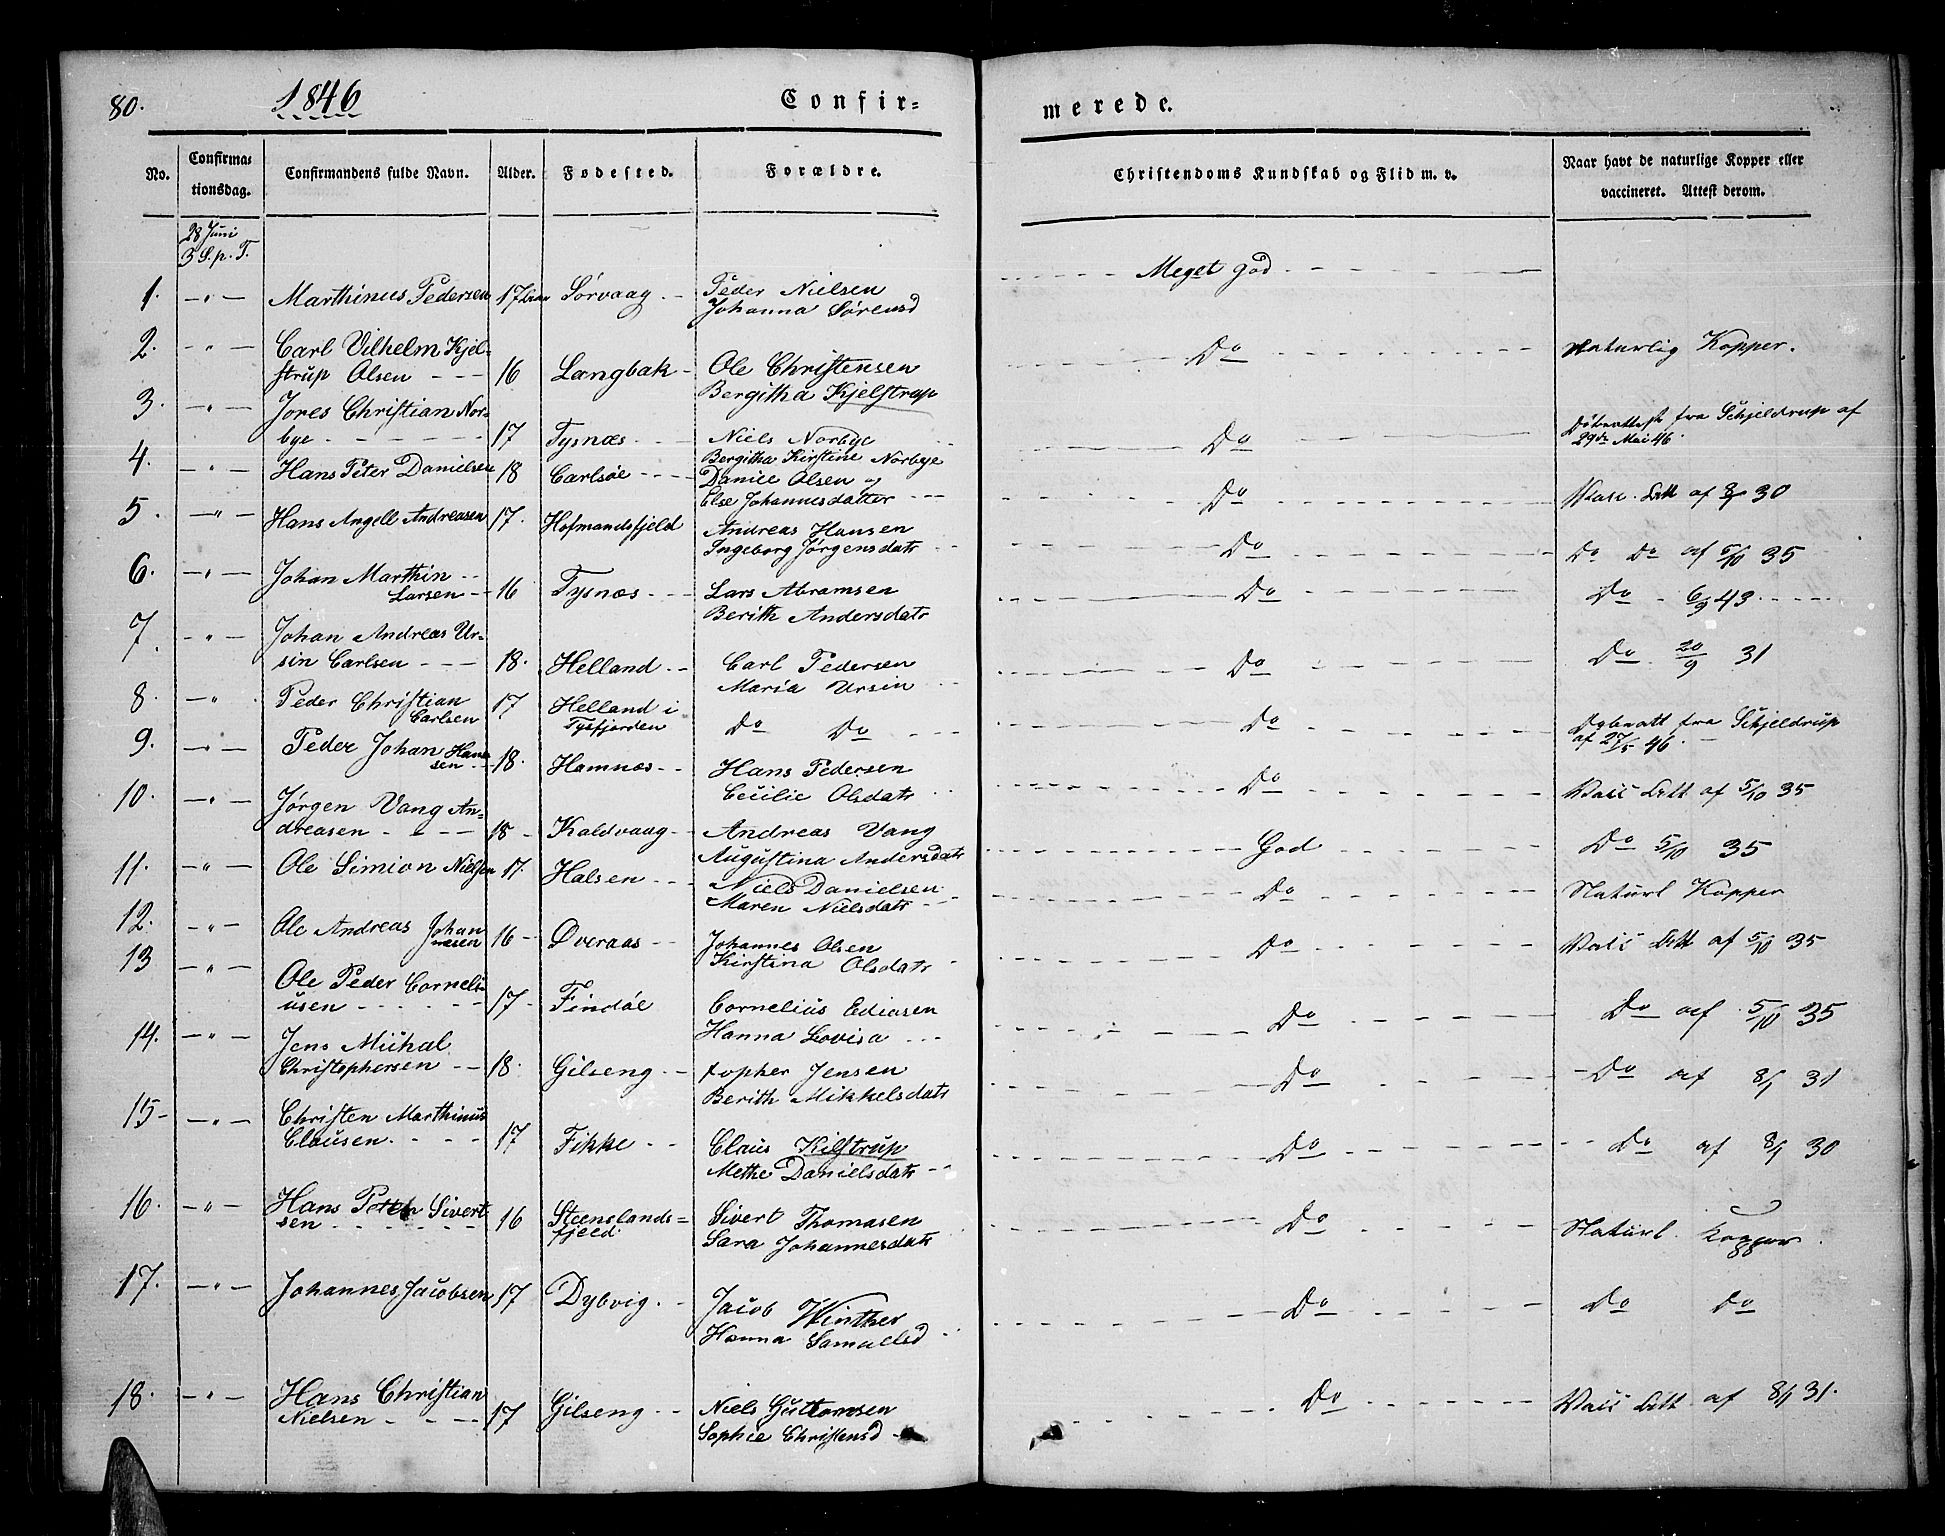 80. 1846 Confir= merede.
No. Confirmationsdag. Confirmandens fulde Navn. Alder. Fødested. Forældre. Christendoms Kundskab og Flid m. v. Naar havt de naturlige Kopper eller vaccineret. Attest derom.
28 Juni
3 S. p. T.
1. —"— Marthinus Pedersen 17 Sørvaag Peder Nielsen Meget god
Johanna Sørensd
2. —"— Carl Vilhelm Kjel- Do Naturlig Kopper.
strup Olsen 16 Langbak Ole Christensen
Bergitha Kjelstrup
3. —"— Jores Christian Nor-
bye 17 Tysnæs Niels Norbye Do Døbeattest fra Schjeldrup af
29de Mai 46.
Bergitha Kirstine Norbye
4. —"— Hans Peter Danielsen 18 Carlsøe Daniel Olsen og Do Vacc. Att af 30
Else Johannesdatter
5. —"— Hans Angell Andreasen 17. Hofmandsfjeld Andreas Hansen Do Do Do af 5/10 35
Ingeborg Jørgensdatr
6. —"— Johan Marthin
Larsen 16 Tysnæs Lars Abramsen Do Do 6/9 43
Berith Andersdatr
7. —"— Johan Andreas Ur-
sin Carlsen 18. Helland Carl Pedersen Do Do 20/9 31
Maria Ursin
8. " Peder Christian 17 Helland i
Carlsen Tysfjorden Do Do Do Døbeatt fra Schjeldrup
af 27/5 46.
9. —"— Peder Johan Han-
sen 18. Hamnæs Hans Pedersen Do Vacc Att af 5/10 35
Cecilie Olsdatr
10. —"— Jørgen Vang An-
dreasen 18 Kaldvaag Andreas Vang God Do 5/10 35
Augustina Andersdatr
11. —"— Ole Simion Nielsen 17. Halsen Niels Danielsen Do Naturl Kopper
Maren Nielsdatr
12. —"— Ole Andreas Johan
nesen 16 Overaas Johannes Olsen Do Vacc Att af 5/10 35
Kirstina Olsdatr
13 —"— Ole Peder Corneli-
usen 17 Findøl Cornelius Ediasen Do Do af 5/10 35
Hanna Lovisa
14. —"— Jens Michal
Christophersen 18. Gilseng topher Jensen Do Do af 8/1 31
Berith Mikkelsdatr
15 —"— Christen Marthinus
Clausen. 17 Fikke Claus Kilstrup Do Do af 8/1 30
Methe Danielsdatr
16. —"— Hans Peter Sivert
sen 16 Steenslands= Sivert Thomasen Do Naturl. Kopper.
fjeld Sara Johannesdatr
17. —"— Johannes Jacobsen 17 Dybvig. Jacob Winther Do Do Do
Hanna Samuelsd
18. —"— Hans Christian
Nielsen 17 Gilseng Niels Guttomsen Do Vacc Att af 8/1 31.
Sophie Christensd